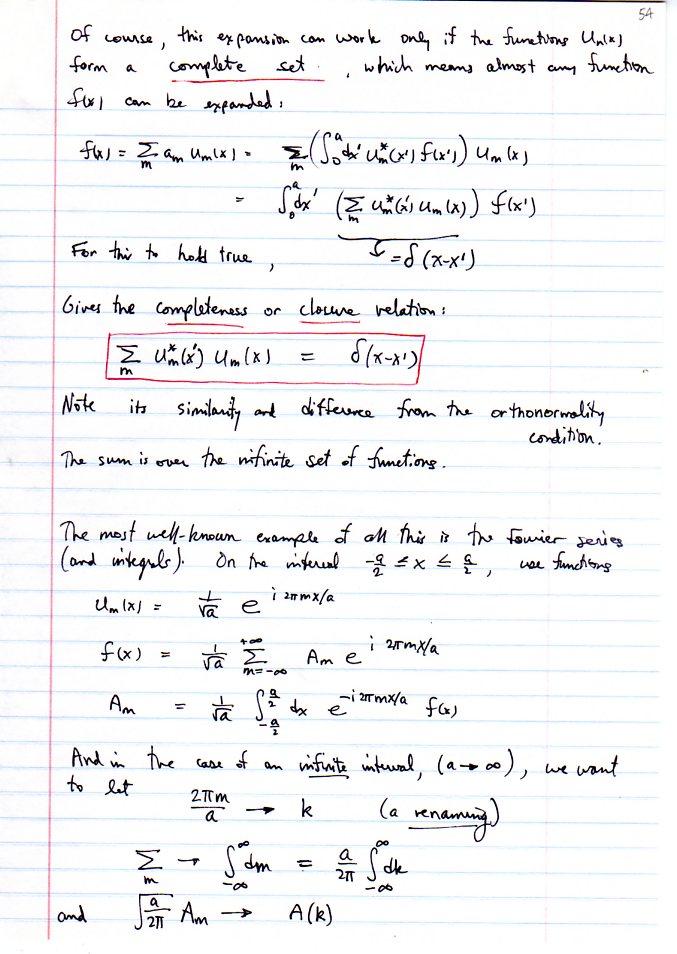 54
Of course, this expansion can work only if the functions Uₙ(x)
form a complete set, which means almost any function
f(x) can be expanded:
f(x) = Σ_m a_m U_m(x) = Σ_m (∫_0^a dx' U_m^*(x') f(x')) U_m(x)
= ∫_0^a dx' (Σ_m U_m^*(x') U_m(x)) f(x')
For this to hold true, = δ(x-x')
Gives the completeness or closure relation:
Σ_m U_m^*(x') U_m(x) = δ(x-x')
Note its similarity and difference from the orthonormality
condition.
The sum is over the infinite set of functions.
The most well-known example of all this is the Fourier series
(and integrals). On the interval -a/2 ≤ x ≤ a/2, use functions
U_m(x) = 1/√a e^{i 2πmx/a}
f(x) = 1/√a Σ_{m=-∞}^{+∞} A_m e^{i 2πmx/a}
A_m = 1/√a ∫_{-a/2}^{a/2} dx e^{-i2πmx/a} f(x)
And in the case of an infinite interval, (a→∞), we want
to let
2πm/a → k (a renaming)
Σ_m → ∫_{-∞}^{∞} dm = a/2π ∫_{-∞}^{∞} dk
and √(a/2π) A_m → A(k)